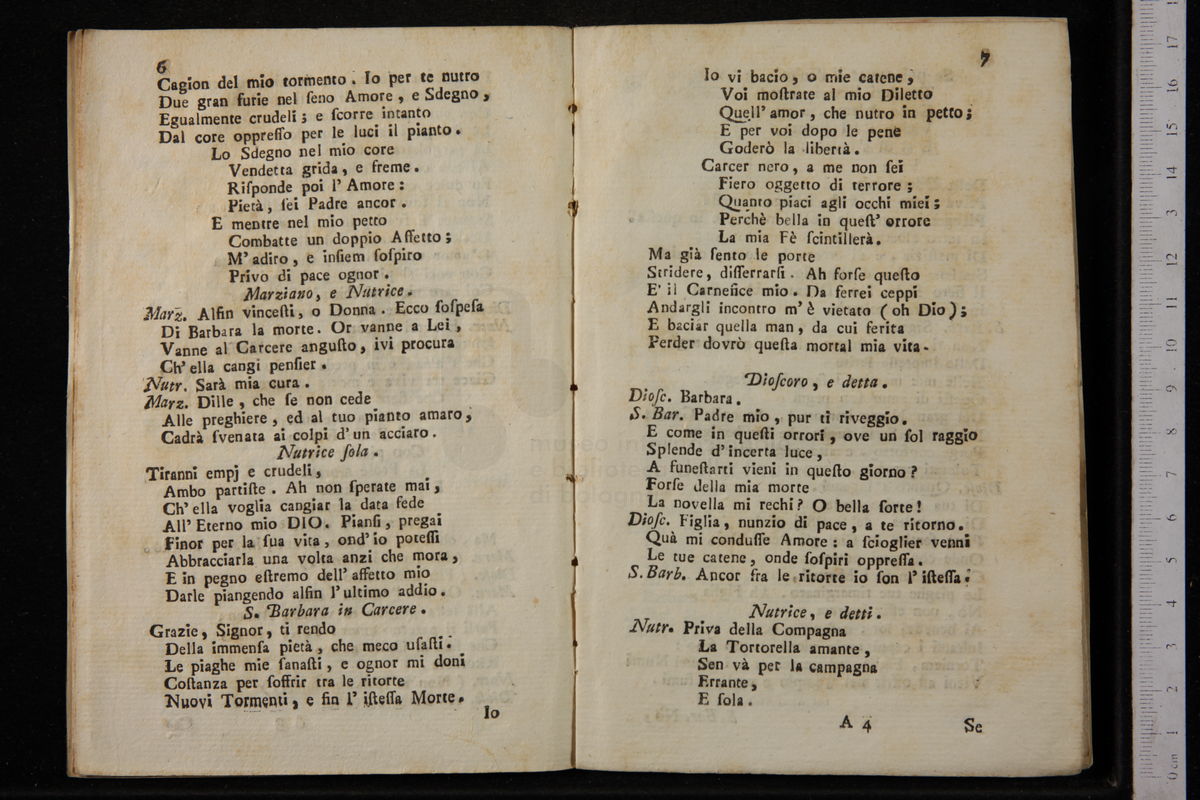 6
Cagion del mio tormento. Io per te nutro
Due gran furie nel ſeno Amore, e Sdegno,
Egualmente crudeli; e ſcorre intanto
Dal core oppreſſo per le luci il pianto.
Lo Sdegno nel mio core
Vendetta grida, e freme.
Riſponde poi l' Amore:
Pietà, ſei Padre ancor.
E mentre nel mio petto
Combatte un doppio Affetto;
M' adiro, e inſiem ſoſpiro
Privo di pace ognor.
Marziano, e Nutrice.
Marz. Alfin vinceſti, o Donna. Ecco ſoſpeſa
Di Barbara la morte. Or vanne a Lei,
Vanne al Carcere anguſto, ivi procura
Ch' ella cangi penſier.
Nutr. Sarà mia cura.
Marz. Dille, che ſe non cede
Alle preghiere, ed al tuo pianto amaro,
Cadrà ſvenata ai colpi d' un acciaro.
Nutrice ſola.
Tiranni empj e crudeli,
Ambo partiſte. Ah non ſperate mai,
Ch' ella voglia cangiar la data fede
All' Eterno mio DIO. Pianſi, pregai
Finor per la ſua vita, ond' io poteſſi
Abbracciarla una volta anzi che mora,
E in pegno eſtremo dell' affetto mio
Darle piangendo alfin l' ultimo addio.
S. Barbara in Carcere.
Grazie, Signor, ti rendo
Della immenſa pietà, che meco uſaſti.
Le piaghe mie ſanaſti, e ognor mi doni
Coſtanza per ſoffrir tra le ritorte
Nuovi Tormenti, e fin l' iſteſſa Morte.
Io
7
Io vi bacio, o mie catene,
Voi moſtrate al mio Diletto
Quell' amor, che nutro in petto;
E per voi dopo le pene
Goderò la libertà.
Carcer nero, a me non ſei
Fiero oggetto di terrore;
Quanto piaci agli occhi miei;
Perchè bella in queſt' orrore
La mia Fè ſcintillerà.
Ma già ſento le porte
Stridere, diſſerrarſi. Ah forſe queſto
E' il Carnefice mio. Da ferrei ceppi
Andargli incontro m' è vietato (oh Dio);
E baciar quella man, da cui ferita
Perder dovrò queſta mortal mia vita.
Dioſcoro, e detta.
Dioſc. Barbara.
S. Bar. Padre mio, pur ti riveggio.
E come in queſti orrori, ove un ſol raggio
Splende d' incerta luce,
A funeſtarti vieni in queſto giorno?
Forſe della mia morte
La novella mi rechi? O bella ſorte!
Dioſc. Figlia, nunzio di pace, a te ritorno.
Quà mi conduſſe Amore: a ſcioglier venni
Le tue catene, onde ſoſpiri oppreſſa.
S. Barb. Ancor fra le ritorte io ſon l' iſteſſa.
Nutrice, e detti.
Nutr. Priva della Compagna
La Tortorella amante,
Sen và per la campagna
Errante,
E ſola.
A 4
Se